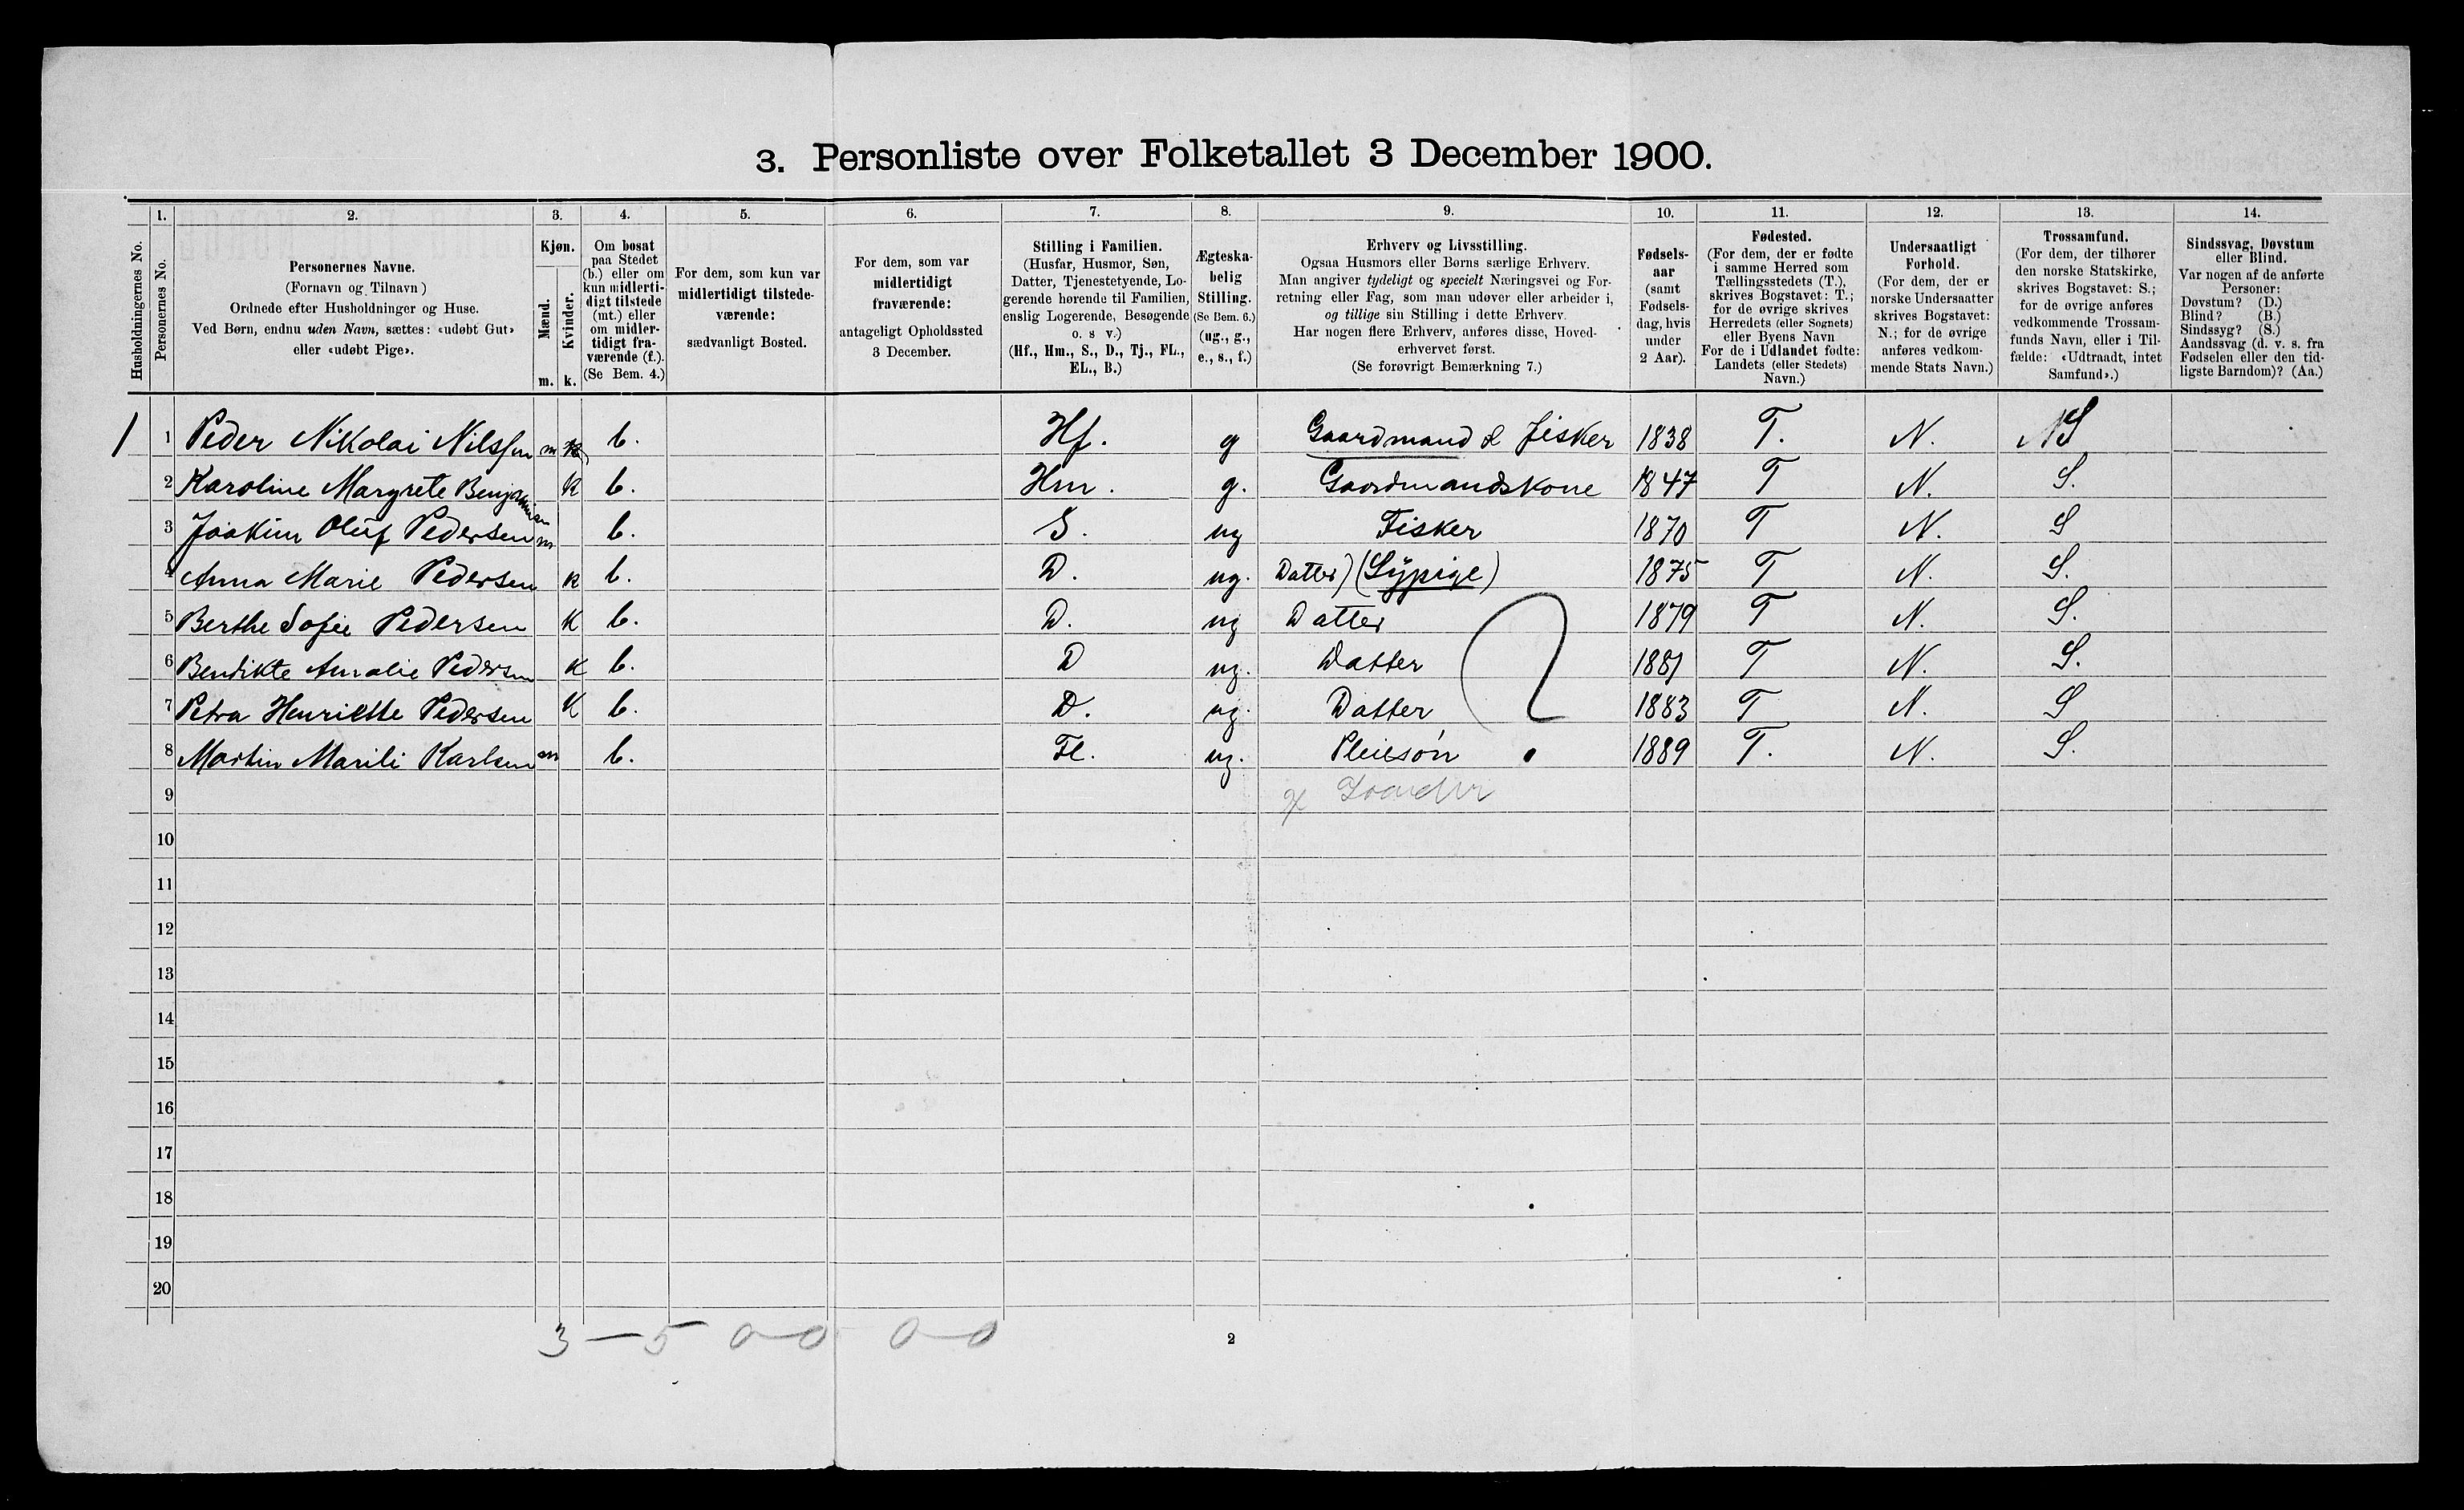 3. Personliste over Folketallet 3 December 1900.
1. 2. 3. 4. 5. 6. 7. 8. 9. 10. 11. 12. 13. 14.
Husholdningernes No.
Personernes No.
Personernes Navne.
(Fornavn og Tilnavn)
Ordnede efter Husholdninger og Huse.
Ved Børn, endnu uden Navn, sættes: «udøbt Gut»
eller «udøbt Pige».
Kjøn.
Mænd.
Kvinder.
m. k.
Om bosat
paa Stedet
(b.) eller om
kun midlerti-
digt tilstede
(mt.) eller
om midler-
tidigt fra-
værende (f.).
(Se Bem. 4.)
For dem, som kun var
midlertidigt tilstede-
værende:
sædvanligt Bosted.
For dem, som var
midlertidigt
fraværende:
antageligt Opholdssted
3 December.
Stilling i Familien.
(Husfar, Husmor, Søn,
Datter, Tjenestetyende, Lo-
gerende hørende til Familien,
enslig Logerende, Besøgende
o. s v.)
(Hf., Hm., S., D., Tj., FL.,
EL., B.)
Ægteska-
belig
Stilling.
(Se Bem. 6.)
(ug., g.,
e., s., f.)
Erhverv og Livsstilling.
Ogsaa Husmors eller Børns særlige Erhverv.
Man angiver tydeligt og specielt Næringsvei og For-
retning eller Fag, som man udøver eller arbeider i,
og tillige sin Stilling i dette Erhverv.
Har nogen flere Erhverv, anføres disse, Hoved-
erhvervet først.
(Se forøvrigt Bemærkning 7.)
Fødsels-
aar
(samt
Fødsels-
dag, hvis
under
2 Aar).
Fødested.
(For dem, der er fødte
i samme Herred som
Tællingsstedets (T.),
skrives Bogstavet: T.;
for de øvrige skrives
Herredets (eller Sognets)
eller Byens Navn
For de i Udlandet fødte:
Landets (eller Stedets)
Navn.)
Undersaatligt
Forhold.
(For dem, der er
norske Undersaatter
skrives Bogstavet:
N.; for de øvrige
anføres vedkom-
mende Stats Navn.)
Trossamfund.
(For dem, der tilhører
den norske Statskirke,
skrives Bogstavet: S.;
for de øvrige anføres
vedkommende Trossam-
funds Navn, eller i Til-
fælde: «Udtraadt, intet
Samfund».)
Sindssvag, Døvstum
eller Blind.
Var nogen af de anførte
Personer:
Døvstum? (D.)
Blind? (B.)
Sindssyg? (S.)
Aandssvag (d. v. s. fra
Fødselen eller den tid-
ligste Barndom)? (Aa.)
1 1 Peder Nikolai Nilssen m k b. Hf. g Gaardmand & fisker 1838 T. N. NS
2 Karoline Margrete Benjaminsen k b. Hm. g. Gaardmandskone 1847 T N. S.
3 Joakim Oluf Pedersen m b. S. ug Fisker 1870 T N. S
4 Anna Marie Pedersen k b. D. ug. Datter) (Sÿpige) 1875 T N. S.
5 Berthe Sofie Pedersen k b. D. ug Datter 1879 T N. S.
6 Bendikte Amalie Pedersen k b. D ug. Datter 1881 T N. S.
7 Petra Henriette Pedersen k b. D. ug. Datter ? 1883 T N. S
8 Martin Marili Karlsen m b. Fl. ug. Pleiesøn 1889 T. N. S.
9
10
11
12
13
14
15
16
17
18
19
20
3 — 5 0—0 0—0
2